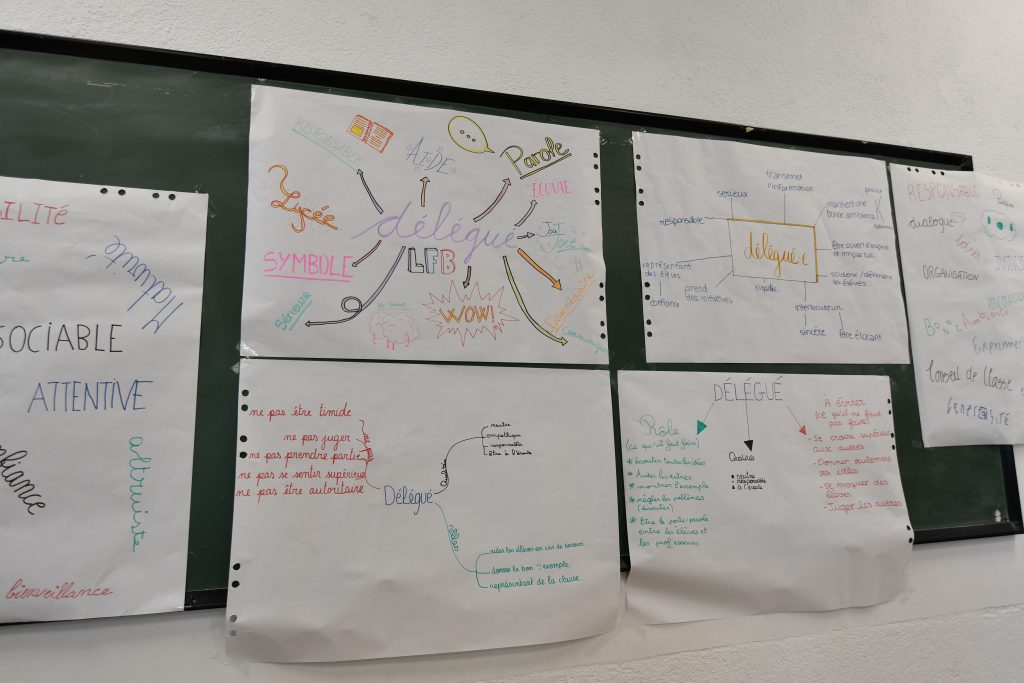 SILITÉ
Maturité
SOCIABLE
ATTENTIVE
altruiste
bienveillance
RESPONSABLE
AIDE
Parole
ÉCOUTE
Lycée
délégué
Joie
SYMBOLE
LFB
Sérieux
WOW!
transmet
l'information
sérieux
responsable
maintient une
bonne ambiance
délégué·e
être ouvert d'esprit
et impartial
représentant
des élèves
soutenir / défendre
les élèves
prend
des initiatives
empathie
confiance
interlocuteur
sincère
être élocant
RESPONSABLE
dialogue
ORGANISATION
JUSTICE
Ambiance
Conseil de Classe
GÉNÉROSITÉ
ne pas être timide
ne pas juger
ne pas prendre partie
ne pas se sentir supérieur
ne pas être autoritaire
Délégué
Qualités
neutre
empathique
responsable
être à l'écoute
rôles
aider les élèves en cas de besoin
donner le bon exemple
représentant de la classe
DÉLÉGUÉ
Rôle
(ce qu'il faut faire)
* écouter toutes les idées
* Aider les autres
* montrer l'exemple
* régler les poblèmes
(discuter)
* Être le porte-parole
entre les élèves et
les professeurs
Qualités
neutre
responsable
à l'écoute
À éviter
(ce qu'il ne faut
pas faire)
- Se croire supérieur
aux autres
- Donner seulement
ses idées
- Se moquer des
élèves
- Juger les autres